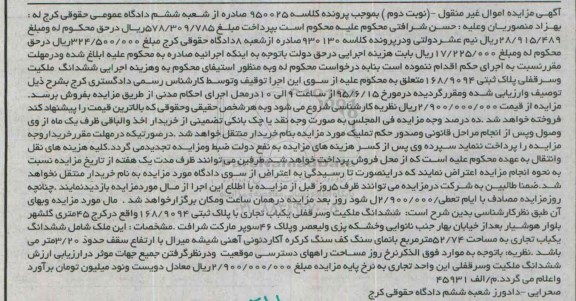 آگهی مزایده اموال غیر منقول -(نوبت دوم ) بموجب پرونده کلاسه ۹۵۰۰۲۵ صادره از شعبه ششم دادگاه عمومی حقوقی کرج له :
بهزاد منصوریان وعلیه : حسن شرافتی محکوم علیه محکوم است بپرداخت مبلغ ۵۷۸/۳۰۹/۷۸۵ریال درحق محکوم له ومبلغ
۲۸/۹۱۵/۴۸۹ریال نیم عشردولتی ودرپرونده کلاسه ۹۳۰۱۳۰ صادره از شعبه ۸دادگاه حقوقی کرج مبلغ ۳۲۴/۵۰۰/۰۰۰ریال درحق
محکوم له ومبلغ ۱۷/۲۲۵/۰۰۰ریال بابت هزینه اجرایی درحق دولت باتوجه به اینکه اجرائیه صادره به محکوم علیه ابلاغ شده ودرمهلت
مقررنسبت به اجرای حکم اقدام ننموده است بنابه درخواست محکوم له وبه منظور استیفای محکوم به وهزینه اجرایی ششدانگ ملکیت
وسرقفلی پلاک ثبتی ۱۶۸/۹۰۹۴متعلق به محکوم علیه از سوی این اجرا توقیف وتوسط کارشناس رسمی دادگستری کرج بشرح ذیل
توصیف وارزیابی شده ومقررگردیده درمورخ ۹۵/۶/۱۵از ساعت ۹ الی ۱۰درمحل اجرای احکام مدنی از طریق مزایده بفروش برسد.
مزایده از قیمت ۲/۹۰۰/۰۰۰/۰۰۰ریال نظریه کارشناسی شروع می شود وبه هرشخص حقیقی وحقوقی که بالاترین قیمت را پیشنهاد کند
فروخته خواهد شد .ده درصد وجه مزایده فی المجلس به صورت وجه نقد یا چک بانکی تضمینی از خریدار اخذ والباقی ظرف یک ماه از وی
وصول وپس از انجام مراحل قانونی وصدور حکم تملیک مورد مزایده بنام خریدار منتقل خواهد شد .درصورتیکه درمهلت مقررخریداروجه
مزایده را پرداخت ننماید سپرده وی پس از کسر هزینه های مزایده به نفع دولت ضبط ومزایده تجدیدمی گردد.کلیه هزینه های نقل
وانتقال به عهده محکوم علیه است که از محل فروش پرداخت خواهدشد .طرفین می توانند ظرف مدت یک هفته از تاریخ مزایده نسبت
به نحوه انجام مزایده اعتراض نمایند که دراینصورت تا رسیدگی به اعتراض از سوی دادگاه مورد مزایده به نام خریدار منتقل نخواهد
شد.ضمنا طالبین به شرکت درمزایده می توانند ظرف ۵روز قبل از مزایده با اطلاع این اجرا از مال موردمزایده بازدیدنمایند .چنانچه
روزمزایده مصادف با ایام تعطیل/۲/۹۰۰/۰۰۰/۰۰۰ل شود روز بعد مزایده درهمان ساعت ومکان برگزارخواهد شد . مال مورد مزایده وبهای
آن طبق نظرکارشناسی بدین شرح است: ششدانگ ملکیت وسرقفلی یکباب تجاری با پلاک ثبتی ۱۶۸/۹۰۹۴ واقع درکرج ۴۵متری گلشهر
بلوار هوشیار بعداز خیابان بهار جنب نانوایی وخشکه پزی ولیعصر وپلاک ۴۶سوپر مارکت شرافت .مشخصات : این ملک شامل ششدانگ
یکباب تجاری به مساحت ۵۲/۷۴مترمربع بانمای سنگ کف سنگ کرکره آکاردئونی آهنی شیشه میرال با ارتفاع سقف حدود ۳/۲۰متر می
باشد .نظریه: باتوجه به موارد فوق الذکرنرخ روز مساحت راههای دسترسی موقعیت ودرنظرگرفتن جمیع جهات موثر درارزیابی ارزش
ششدانگ ملکیت وسرقفلی این واحد تجاری به نرخ پایه مزایده مبلغ ۲/۹۰۰/۰۰۰/۰۰۰ریال معادل دویست ونود میلیون تومان برآورد
واعلام می گردد.م/الف ۴۵۹۳۱
صحرایی -دادورز شعبه ششم دادگاه حقوقی کرج